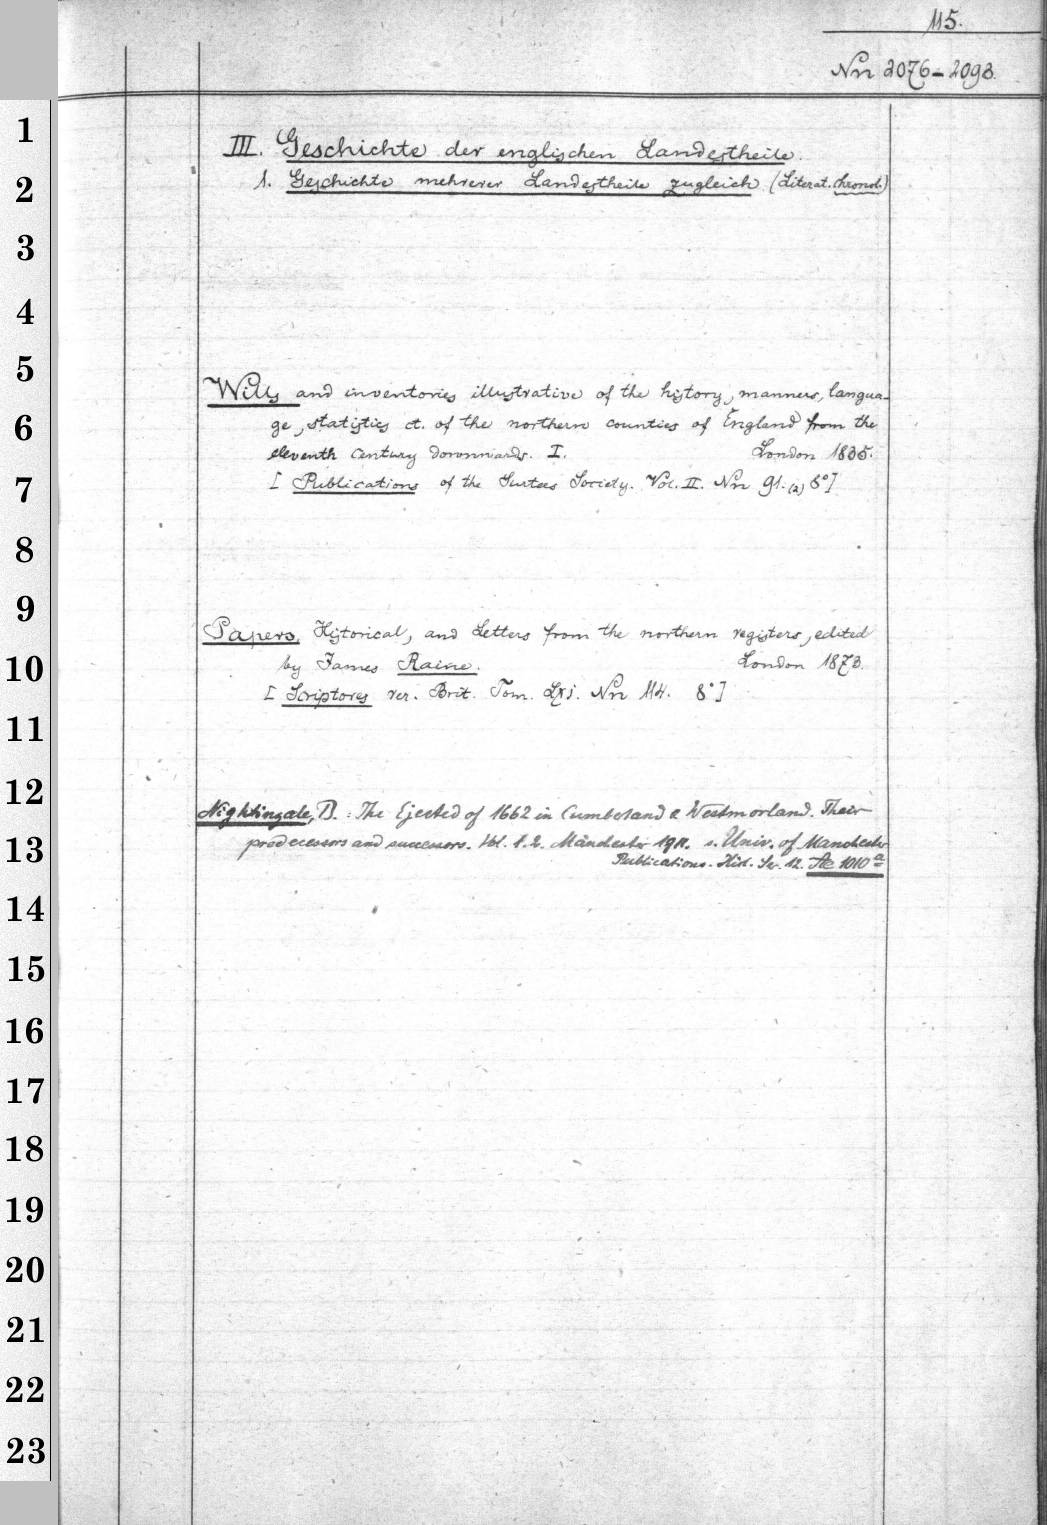 115.
Nn 2076-2093.
1
III. Geschichte der englischen Landestheile.
2
1. Geschichte mehrerer Landestheile zugleich. (Literat. Chronol.)
3
4
5
Wills and inventories illustrative of the history, manners, langua-
6
ge, statistics ct. of the northern counties of England from the
eleventh century downwards. I. London 1835.
7
[Publications of the Surtees Society. Vol. II. Nn 91.(2) 8°]
8
9
Papers, Historical, and Letters from the northern registers, edited
10
by James Raine. London 1873.
[Scriptores rer. Brit. Tom. LXI. Nn 114. 8°]
11
12
Nightingale, B.: The Ejected of 1662 in Cumberland & Westmorland. Their
13
predecessors and successors. Vol. 1.2. Manchester 1911. s. Univ. of Manchester
Publications. Hist. Ser. 12. Ae 1010 a
14
15
16
17
18
19
20
21
22
23